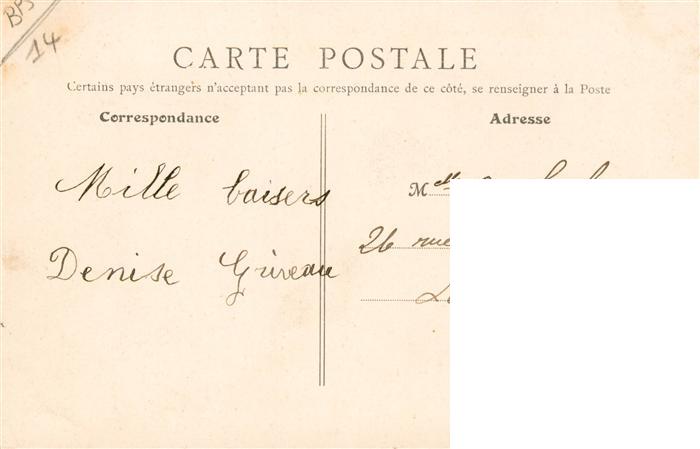 14
CARTE POSTALE
Certains pays étrangers n'acceptant pas la correspondance de ce côté, se renseigner à la Poste
Correspondance
Adresse
Mille baisers
Denise Griveau
Mlle
26 rue